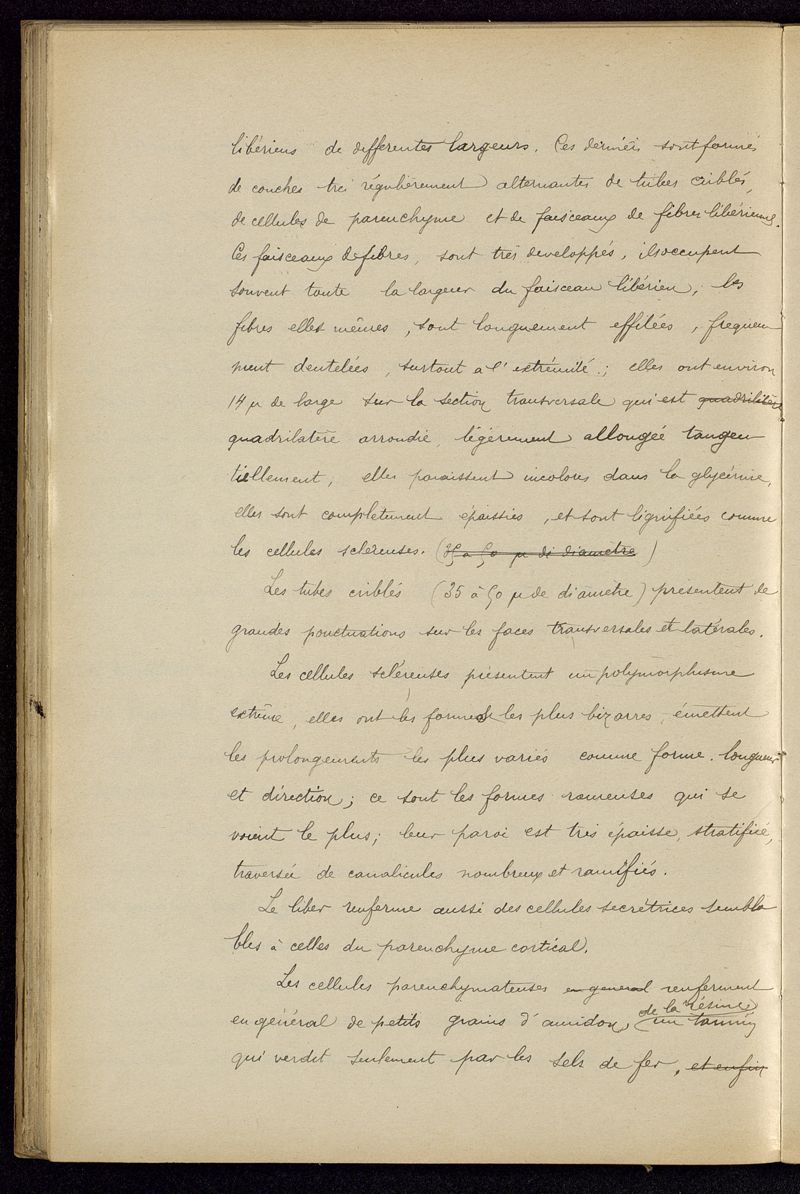 libériens de differentes largeurs. Ces derniers sont formés
de couches très régulièrement alternantes de tubes criblés,
de cellules de parenchyme et de faisceaux de fibres libériennes.
Ces faisceaux de fibres, sont très developpés, ils occupent
souvent toute la largeur du faisceau libérien; les
fibres elles mêmes, sont longuement effilées, frequem
ment dentelées, surtout a l'extrémité; elles ont environ
14 µ de large sur la section transversale qui est quadrilitère
quadrilatère arrondie, légèrement allongée tangen
tiellement; elles paraissent incolores dans la glycérine,
elles sont complètement épaissies, et sont lignifiées comme
les cellules scléreuses. (35 a 50 µ de diamètre)
Les tubes criblés (35 à 50 µ de diamètre) présentent de
grandes ponctuations sur les faces transversales et latérales.
Les cellules scléreuses présentent un polymorphisme
extrême, elles ont les formes les plus bizarres, émettent
les prolongements les plus variés comme forme, longueur
et direction; ce sont les formes rameuses qui se
voient le plus; leur paroi est très épaisse, stratifiée,
traversée de canalicules nombreux et ramifiés.
Le liber renferme aussi des cellules secrétrices sembla
bles à celles du parenchyme cortical.
Les cellules parenchymateuses en general renferment
en général de petits grains d'amidon, de la résine un tannin
qui verdit seulement par les sels de fer, et enfin